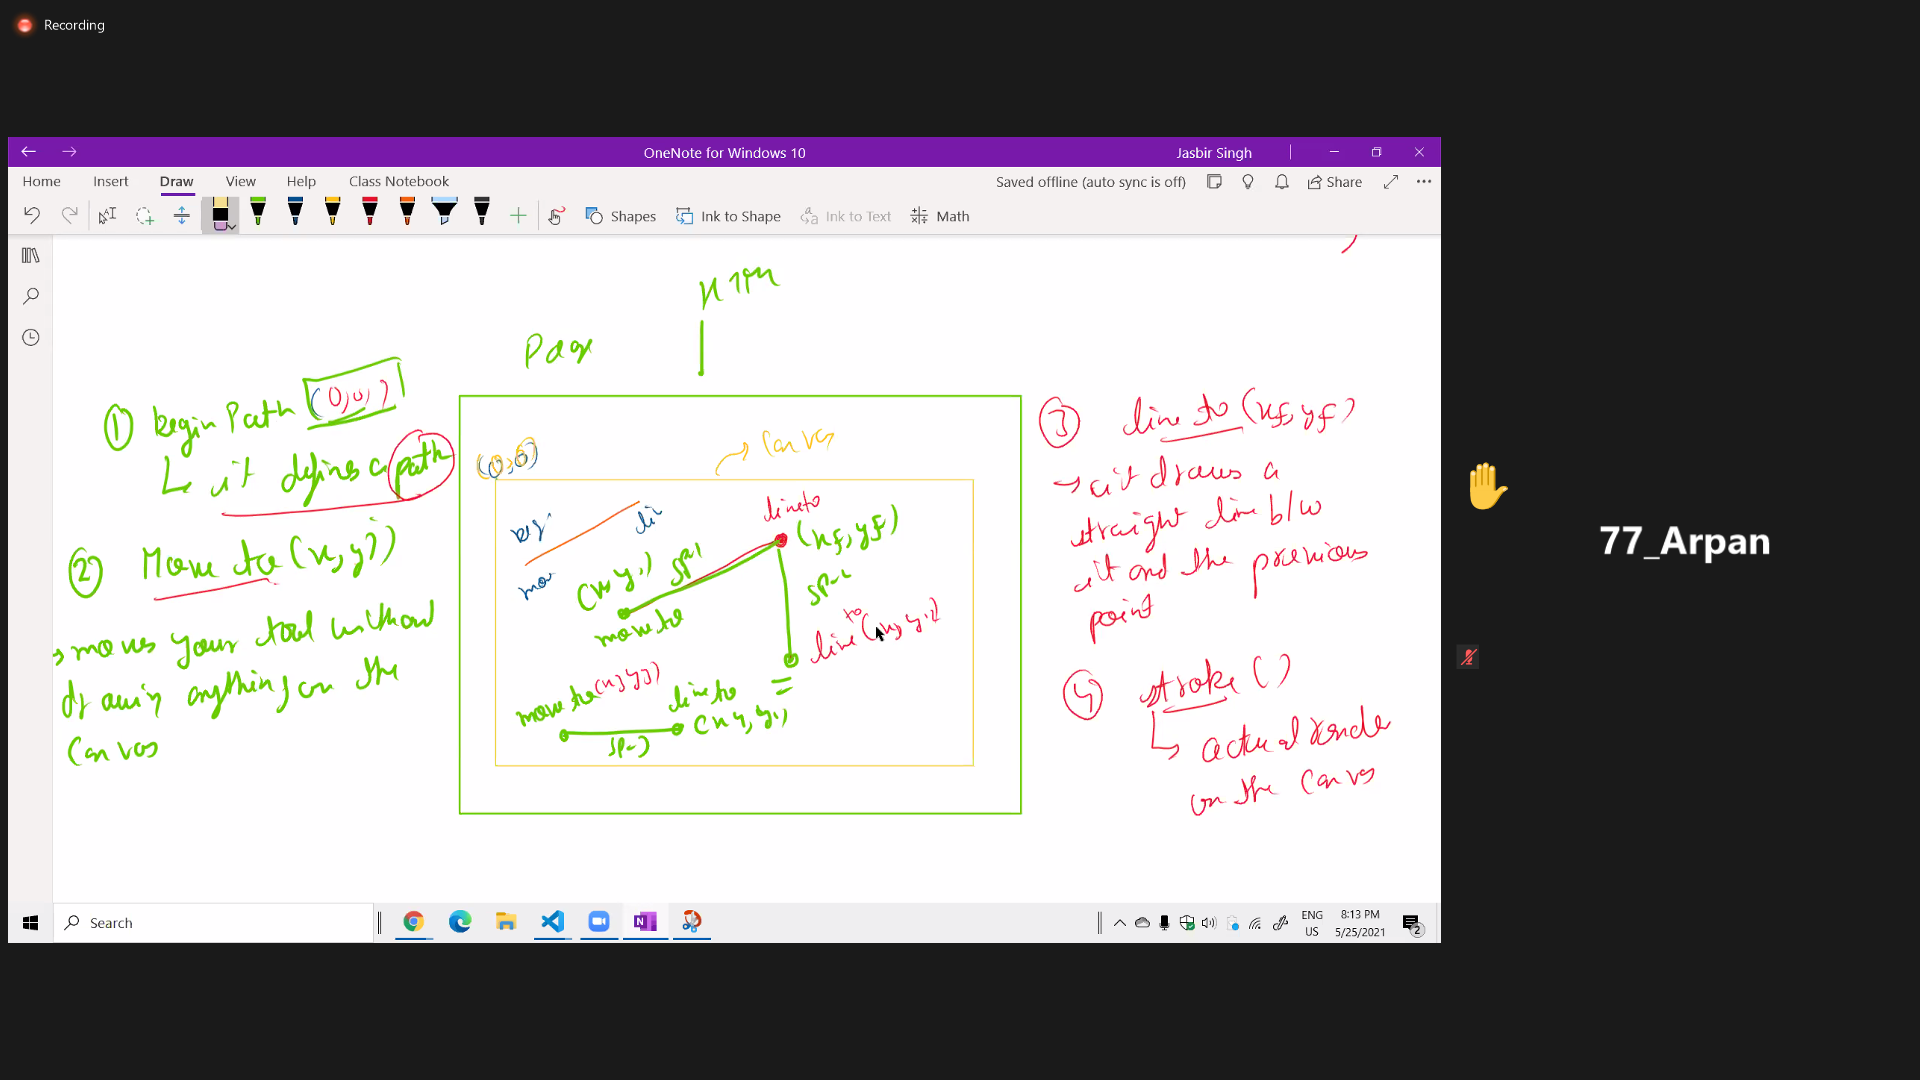 Recording
OneNote for Windows 10
Jasbir Singh
Home Insert Draw View Help Class Notebook
Saved offline (auto sync is off)
Share
Shapes
Ink to Shape
Ink to Text
Math
HTM
Page
① begin Path (0,0,)
it defines a path
② Move to (x,y)
moves your tool without
drawing anything on the
Canvas
(0,0)
Canvas
mov
li
lineto
(xf, yf)
(x, y,)
SP-1
move to
SP-2
line to
move to
line to
SP-3
③ line to (xf, yf)
it draws a
straight line b/w
it and the previous
point
④ stroke ()
actual render
on the canvas
77_Arpan
Search
ENG
US
8:13 PM
5/25/2021
2